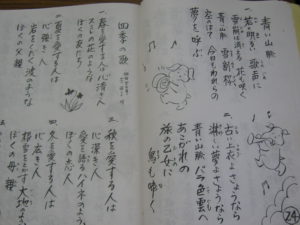 青い山脈
一、若く明るい歌声に
雪崩は消える 花も咲く
青い山脈 雪割桜
空のはて 今日もわれらの
夢を呼ぶ
二、古い上衣よさようなら
淋しい夢よさようなら
青い山脈 バラ色雲へ
あこがれの
旅の乙女に
鳥も啼く
24
四季の歌
一、春を愛する人は 心清き人
すみれの花のような
ぼくの友だち
二、夏を愛する人は
心強き人
岩をくだく波のような
ぼくの父親
三、秋を愛する人は
心深き人
愛を語るハイネのような
ぼくの恋人
四、冬を愛する人は
心広き人
根雪をとかす大地のような
ぼくの母親